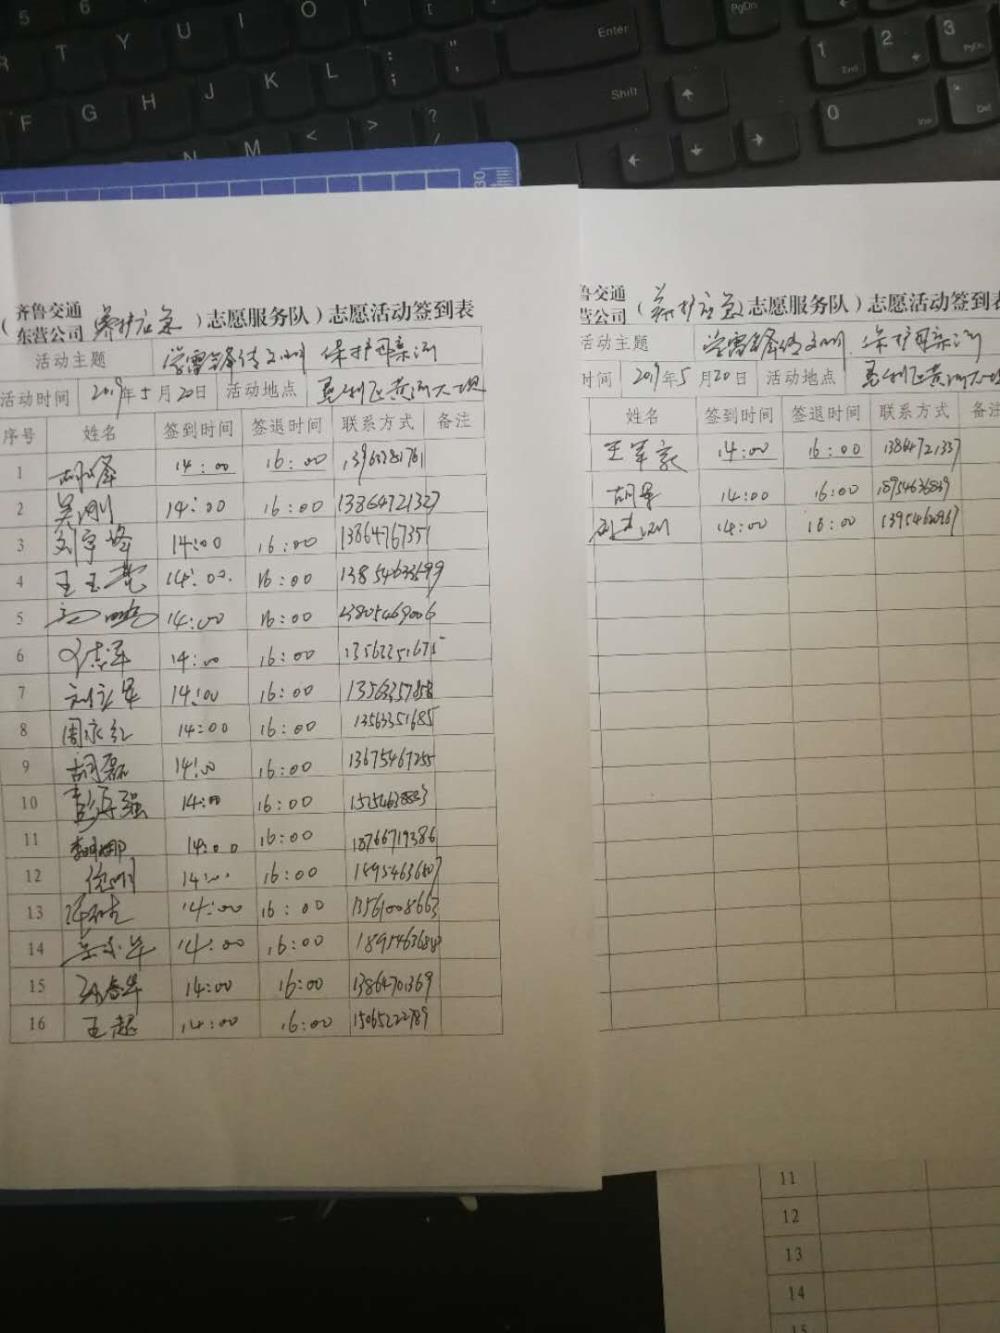 5 6
R T Y U I O
F G H J K L ; : ' "
N M < > ? /
Enter
Shift
PgUp PgDn
1 End 2 3 PgDn
0 Ins . Del
30
齐鲁交通
东营公司
（养护应急）志愿服务队）志愿活动签到表
活动主题 学雷锋传文明 保护母亲河
活动时间 2019年5月20日 活动地点 垦利区黄河大坝
序号 姓名 签到时间 签退时间 联系方式 备注
1 14:00 16:00
2 吴刚 14:00 16:00 13864721327
3 刘宇峰 14:00 16:00 13864767351
4 王玉 14:00 16:00 13854633599
5 14:00 16:00 13805469006
6 14:00 16:00
7 14:00 16:00 13563357858
8 周永红 14:00 16:00 13563351685
9 胡磊 14:00 16:00 13675467255
10 彭 强 14:00 16:00
11 李 娜 14:00 16:00 18766719386
12 徐明 14:00 16:00
13 14:00 16:00 13561008663
14 14:00 16:00
15 孙春华 14:00 16:00 13864701369
16 王超 14:00 16:00 15065222789
鲁交通
营公司
（养护应急）志愿服务队）志愿活动签到表
活动主题 学雷锋传文明 保护母亲河
时间 2019年5月20日 活动地点 垦利区黄河大坝
姓名 签到时间 签退时间 联系方式 备注
王军 14:00 16:00 13864721337
胡军 14:00 16:00 18954636839
14:00 16:00 13954620967
11
12
13
14
15